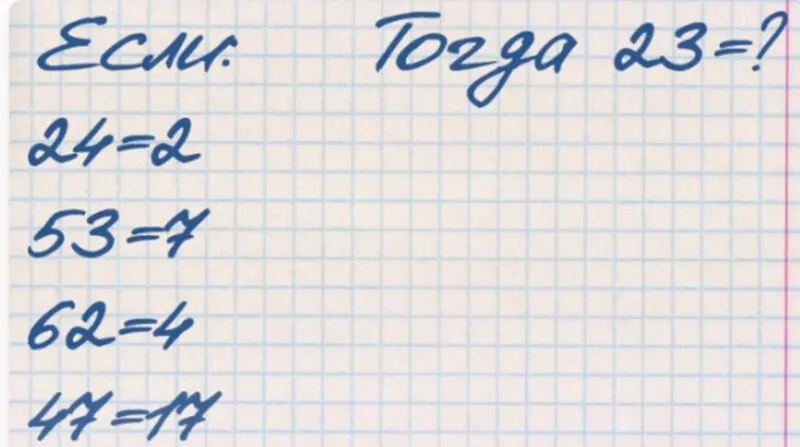 Если: Тогда 23=?
24=2
53=7
62=4
47=17